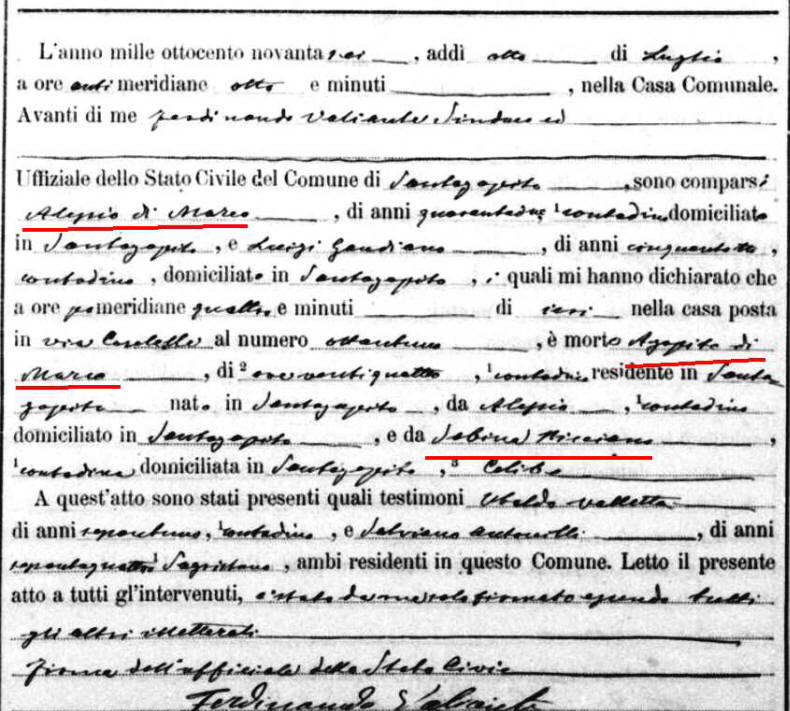 L'anno mille ottocento novantasei, addì otto di Luglio,
a ore antimeridiane otto e minuti , nella Casa Comunale.
Avanti di me Ferdinando Valiante Sindaco ed
Uffiziale dello Stato Civile del Comune di Santagapito, sono comparsi
Alessio di Marco, di anni quarantadue ¹contadino domiciliato
in Santagapito, e Luigi Gaudiano, di anni cinquantotto,
contadino, domiciliato in Santagapito, i quali mi hanno dichiarato che
a ore pomeridiane quattro e minuti di ieri nella casa posta
in via al numero ottantuno, è morto Agapito di
Marco, di ² ore ventiquattro, ¹contadino residente in Santa-
gapito nato in Santagapito, da Alessio, ¹contadino
domiciliato in Santagapito, e da Sabina Ricciano,
¹contadina domiciliata in Santagapito, ³ Celibe
A quest'atto sono stati presenti quali testimoni Ubaldo Valletta
di anni settantuno, ¹contadino, e Salviano Antonelli, di anni
settantaquattro ¹Sagristano, ambi residenti in questo Comune. Letto il presente
atto a tutti gl'intervenuti, è stato da me solo firmato essendo tutti
gli altri illetterati
Firma dell'uffiziale dello Stato Civile
Ferdinando Valiante